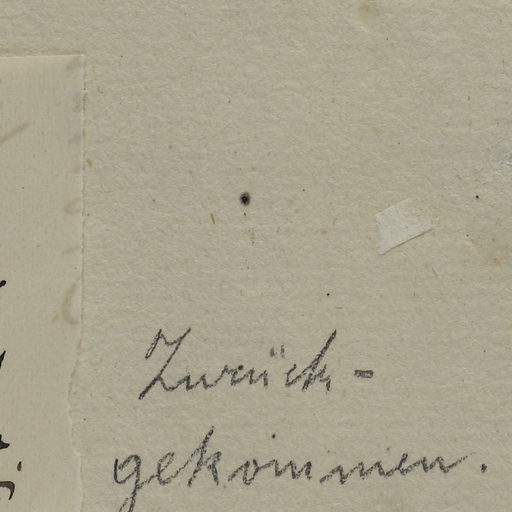 Zurück-
gekommen.